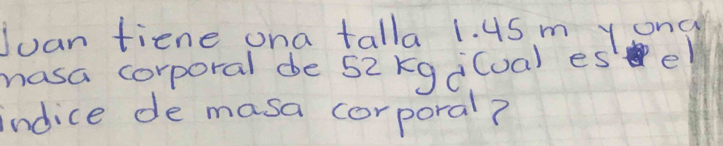 Juan tiene una talla 1.45 m y una
masa corporal de 52 Kg ¿Cual es el
indice de masa corporal?